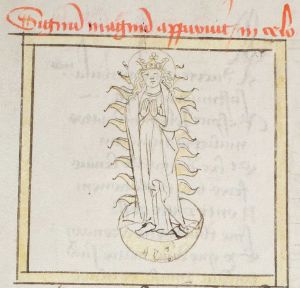 Signū magnū apparuit in celo